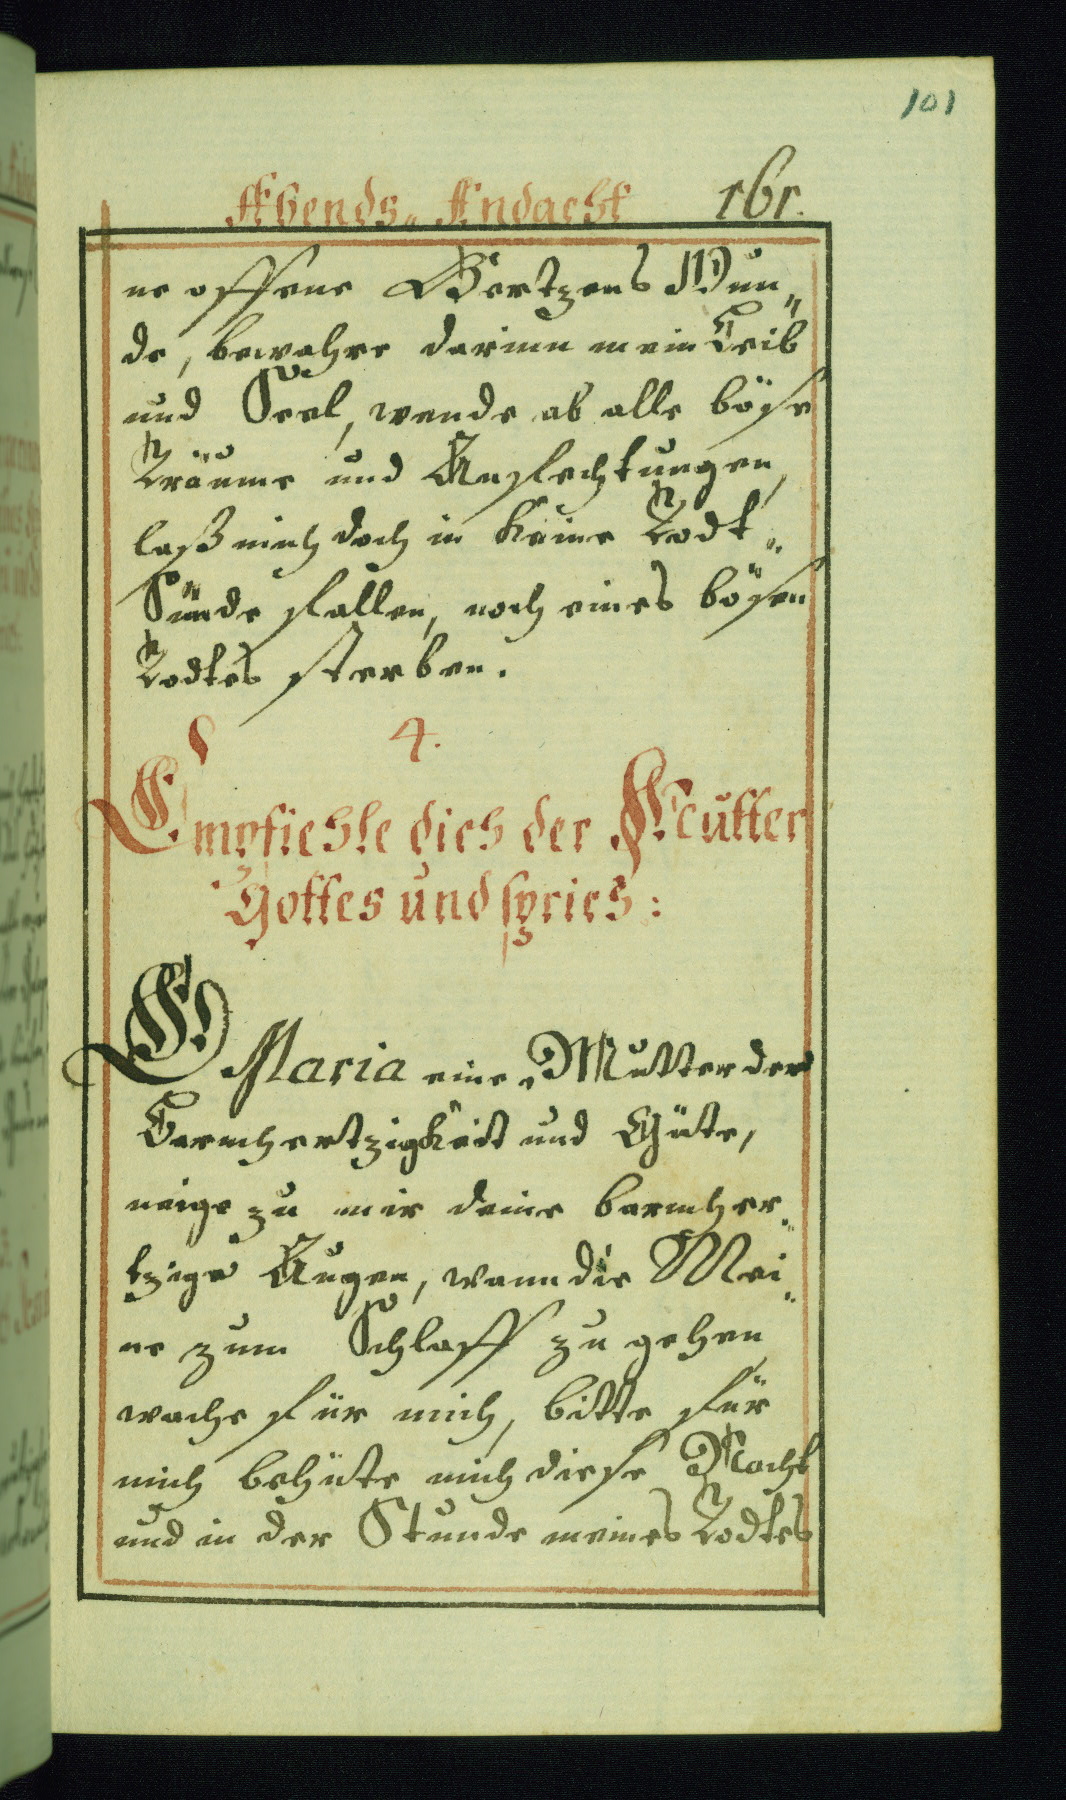 101
Abends-Andacht 161.
ne offene Hertzens Wun-
de, bewahre darinn mein Leib
und Seel, wende ab alle böse
Träume und Anfechtungen,
laß mich doch in keine Todt-
Sünde fallen, noch eines bösen
Todtes sterben.
4.
Empfiehle dich der Mutter
Gottes und sprich:
O Maria eine Mutter der
Barmhertzigkeit und Güte,
neige zu mir deine barmher-
tzige Augen, wann die Mei-
ne zum Schlaff zu gehen
wache für mich, bitte für
mich behüte mich diese Nacht
und in der Stunde meines Todtes